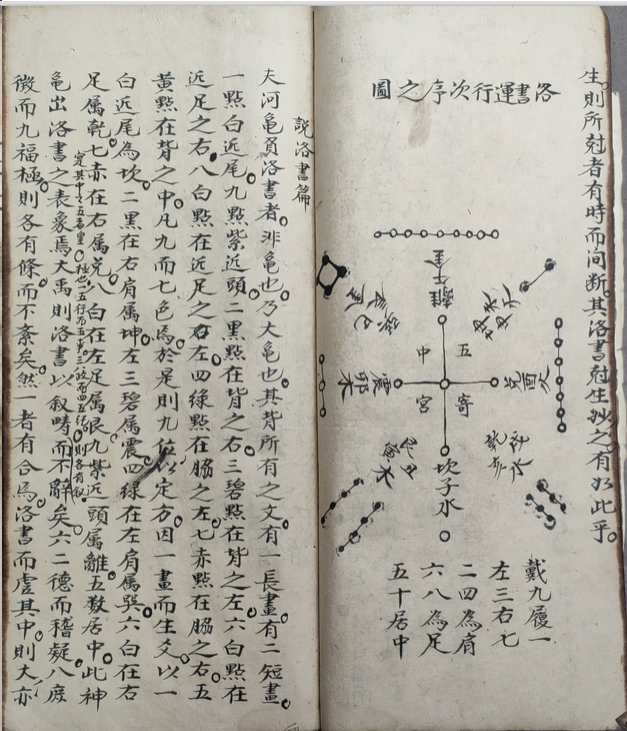 生則所尅者有時而间断其洛書尅生妙之有如此乎
洛書運行次序之圖
離午金
中 五
宮 寄
震卯木
坎子水
戴九履一
左三右七
二四為肩
六八為足
五十居中
說洛書篇
夫河亀負洛書者非亀也乃大亀也其背所有之文有一長畫有二短畫
一點白近尾九點紫近頭二黑點在背之右三碧點在背之左六白點在
近足之右八白點在近足之左四緑點在脇之左七赤點在脇之右五
黄點在背之中凡九而七色焉於是則九位以定方因一畫而生爻以一
白近尾為坎二黑在右肩属坤左三碧属震四緑在左肩属巽六白在右
足属乾七赤在右属兌八白在左足属艮九紫近頭属離五数居中此神
亀出洛書之表象焉大禹則洛書以叙疇而不辭矣六二德而稽疑八庻
徵而九福極則各有條而不紊矣然一者有合焉洛書而虚其中則大亦